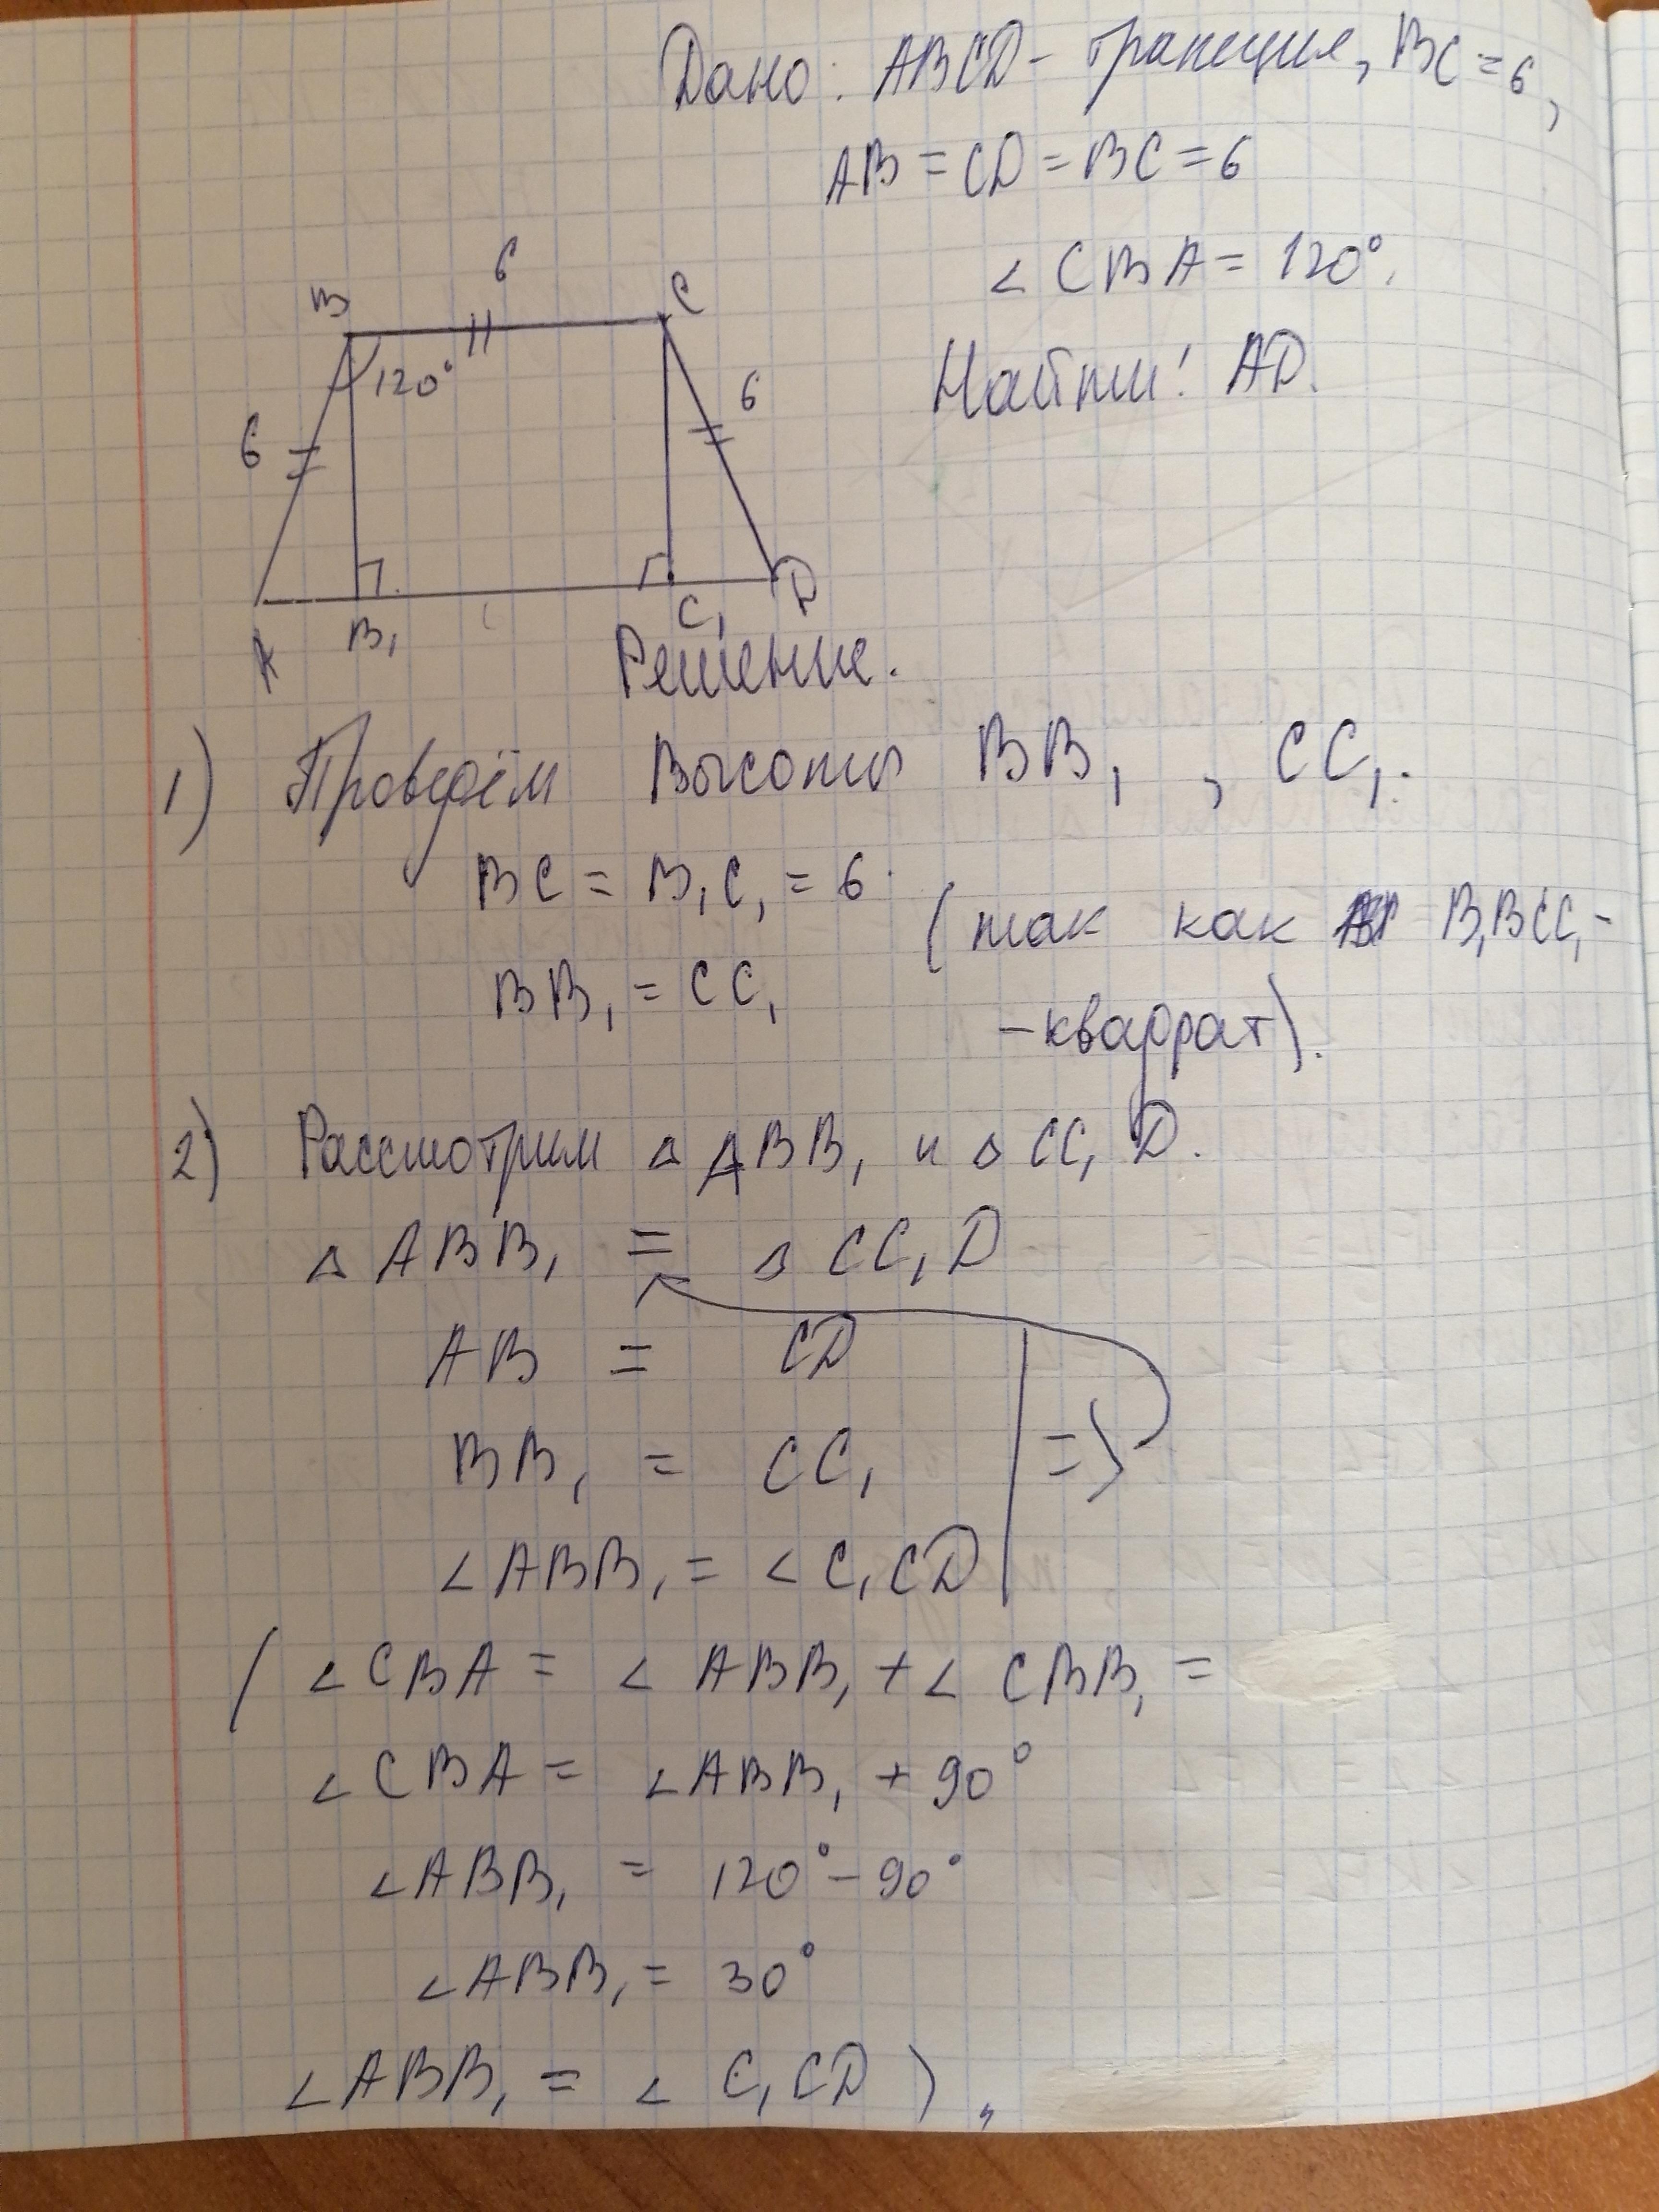 Дано: ABCD - трапеция, BC = 6,
AB = CD = BC = 6
∠ CBA = 120°.
Найти: AD.
6
B
C
120°
6
6
A
B₁
C₁
D
Решение.
1) Проведём высоты BB₁, CC₁.
BC = B₁C₁ = 6.
(так как B₁BCC₁ -
BB₁ = CC₁
- квадрат).
2) Рассмотрим △ ABB₁ и △ CC₁D.
△ ABB₁ = △ CC₁D
AB = CD
BB₁ = CC₁ =>
∠ ABB₁ = ∠ C₁CD
( ∠ CBA = ∠ ABB₁ + ∠ CBB₁ =
∠ CBA = ∠ ABB₁ + 90°
∠ ABB₁ = 120° - 90°
∠ ABB₁ = 30°
∠ ABB₁ = ∠ C₁CD ),